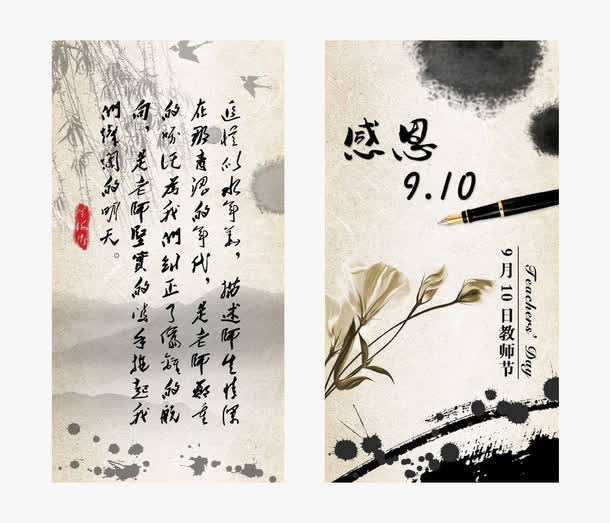 追忆似水年华，描述师生情深
在那青涩的年代，是老师郑重
的为我们纠正了偏离的航
向，是老师坚实的手起我
们灿烂的明天。
感恩
9.10
Teachers' Day
9月10日教师节